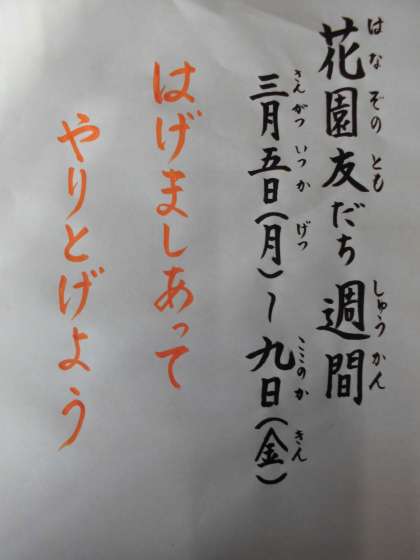 花園友だち週間
はなぞのともしゅうかん
三月五日(月)~九日(金)
さんがついつかげつここのかきん
はげましあって
やりとげよう